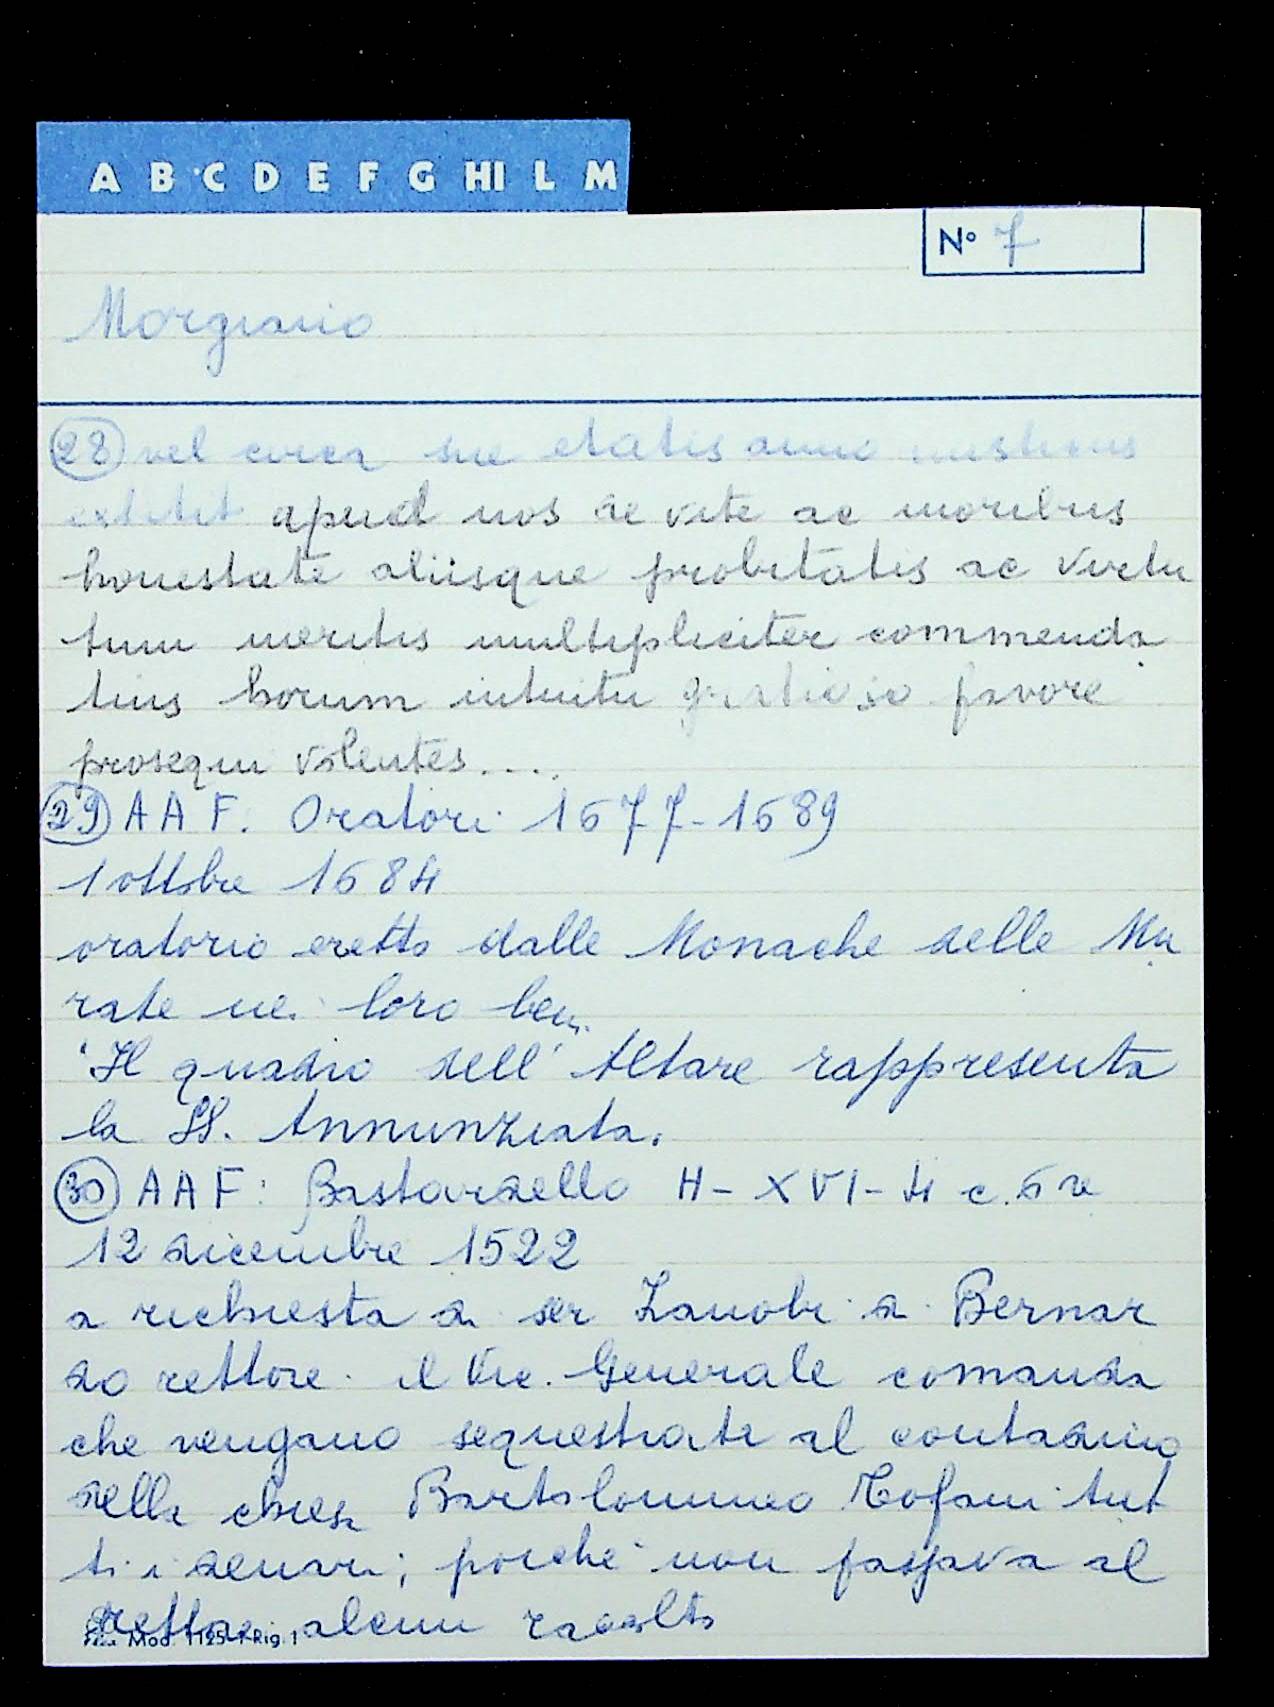 A B C D E F G HI L M
N° 7
Morgiano
(28) vel circa sue etatis anno
extitit apud nos de vite ac moribus
honestate aliisque probitatis ac virtu
tum meritis multipliciter commenda
tus horum intuitu gratioso favore
prosequi volentes....
(29) A A F. Oratori 1677-1689
1 ottobre 1684
oratorio eretto dalle Monache delle Mu
rate nei loro beni.
"Il quadro dell'Altare rappresenta
la SS. Annunziata.
(30) A A F: Bastardello H - XVI - 4 c.
12 dicembre 1522
a richiesta di ser Zanobi di Bernar
do rettore il Vic. Generale comanda
che vengano sequestrate al contadino
della chiesa Bartolommeo Tofani tut
ti i denari; poiché non pagava al
rettore alcun racolto
Mod. 1125-1 Rig. 1